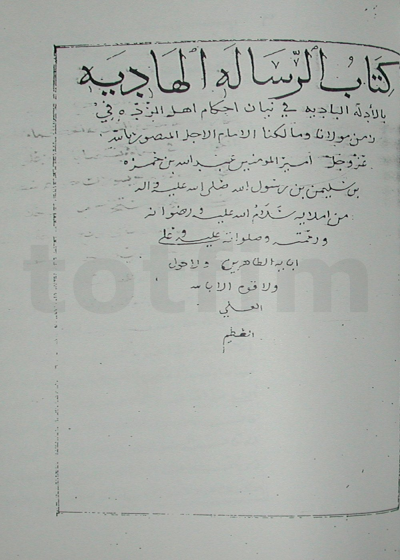 كتاب الرسالة الهادية
بالأدلة البادية في تبيان احكام اهل الردة في
زمن مولانا ومالكنا الامام الاجل المنصور بالله
عز وجل امير المومنين عبد الله بن حمزة
بن سليمن بن رسول الله صلى الله عليه واله
من املايه سلام الله عليه ورضوانه
ورحمته وصلواته عليه وعلى
ابايه الطاهرين ولا حول
ولا قوة الا بالله
العلي
العظيم
totfim